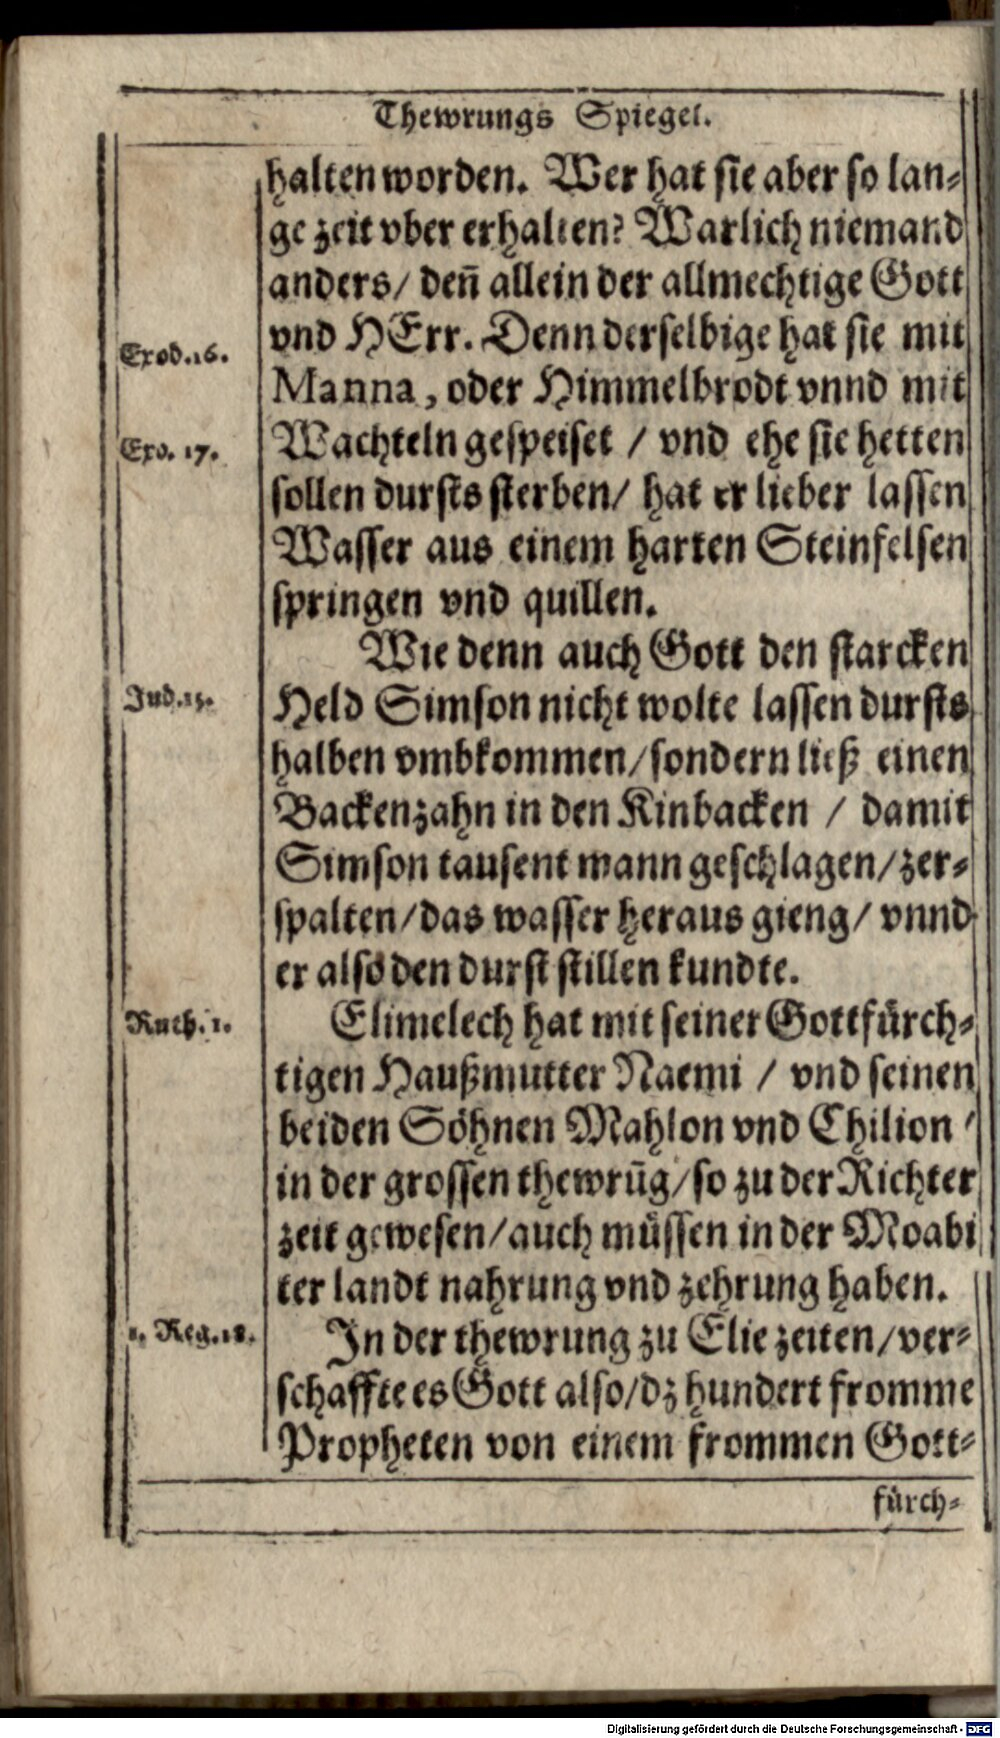 Thewrungs Spiegel.
halten worden. Wer hat sie aber so lan-
ge zeit vber erhalten? Warlich niemand
anders/ deñ allein der allmechtige Gott
vnd HErr. Denn derselbige hat sie mit
Exod.16.
Manna, oder Himmelbrodt vnnd mit
Wachteln gespeiset / vnd ehe sie hetten
Exo. 17.
sollen dursts sterben/ hat er lieber lassen
Wasser aus einem harten Steinfelsen
springen vnd quillen.
Wie denn auch Gott den starcken
Held Simson nicht wolte lassen dursts
Jud.15.
halben vmbkommen/sondern ließ einen
Backenzahn in den Kinbacken / damit
Simson tausent mann geschlagen/zer-
spalten/das wasser heraus gieng/ vnnd
er also den durst stillen kundte.
Elimelech hat mit seiner Gottfürch-
Ruth. 1.
tigen Haußmutter Naemi / vnd seinen
beiden Söhnen Mahlon vnd Chilion /
in der grossen thewrūg/so zu der Richter
zeit gewesen/auch müssen in der Moabi
ter landt nahrung vnd zehrung haben.
In der thewrung zu Elie zeiten/ver-
1. Reg.18.
schaffte es Gott also/dz hundert fromme
Propheten von einem frommen Gott-
fürch-
Digitalisierung gefördert durch die Deutsche Forschungsgemeinschaft - DFG